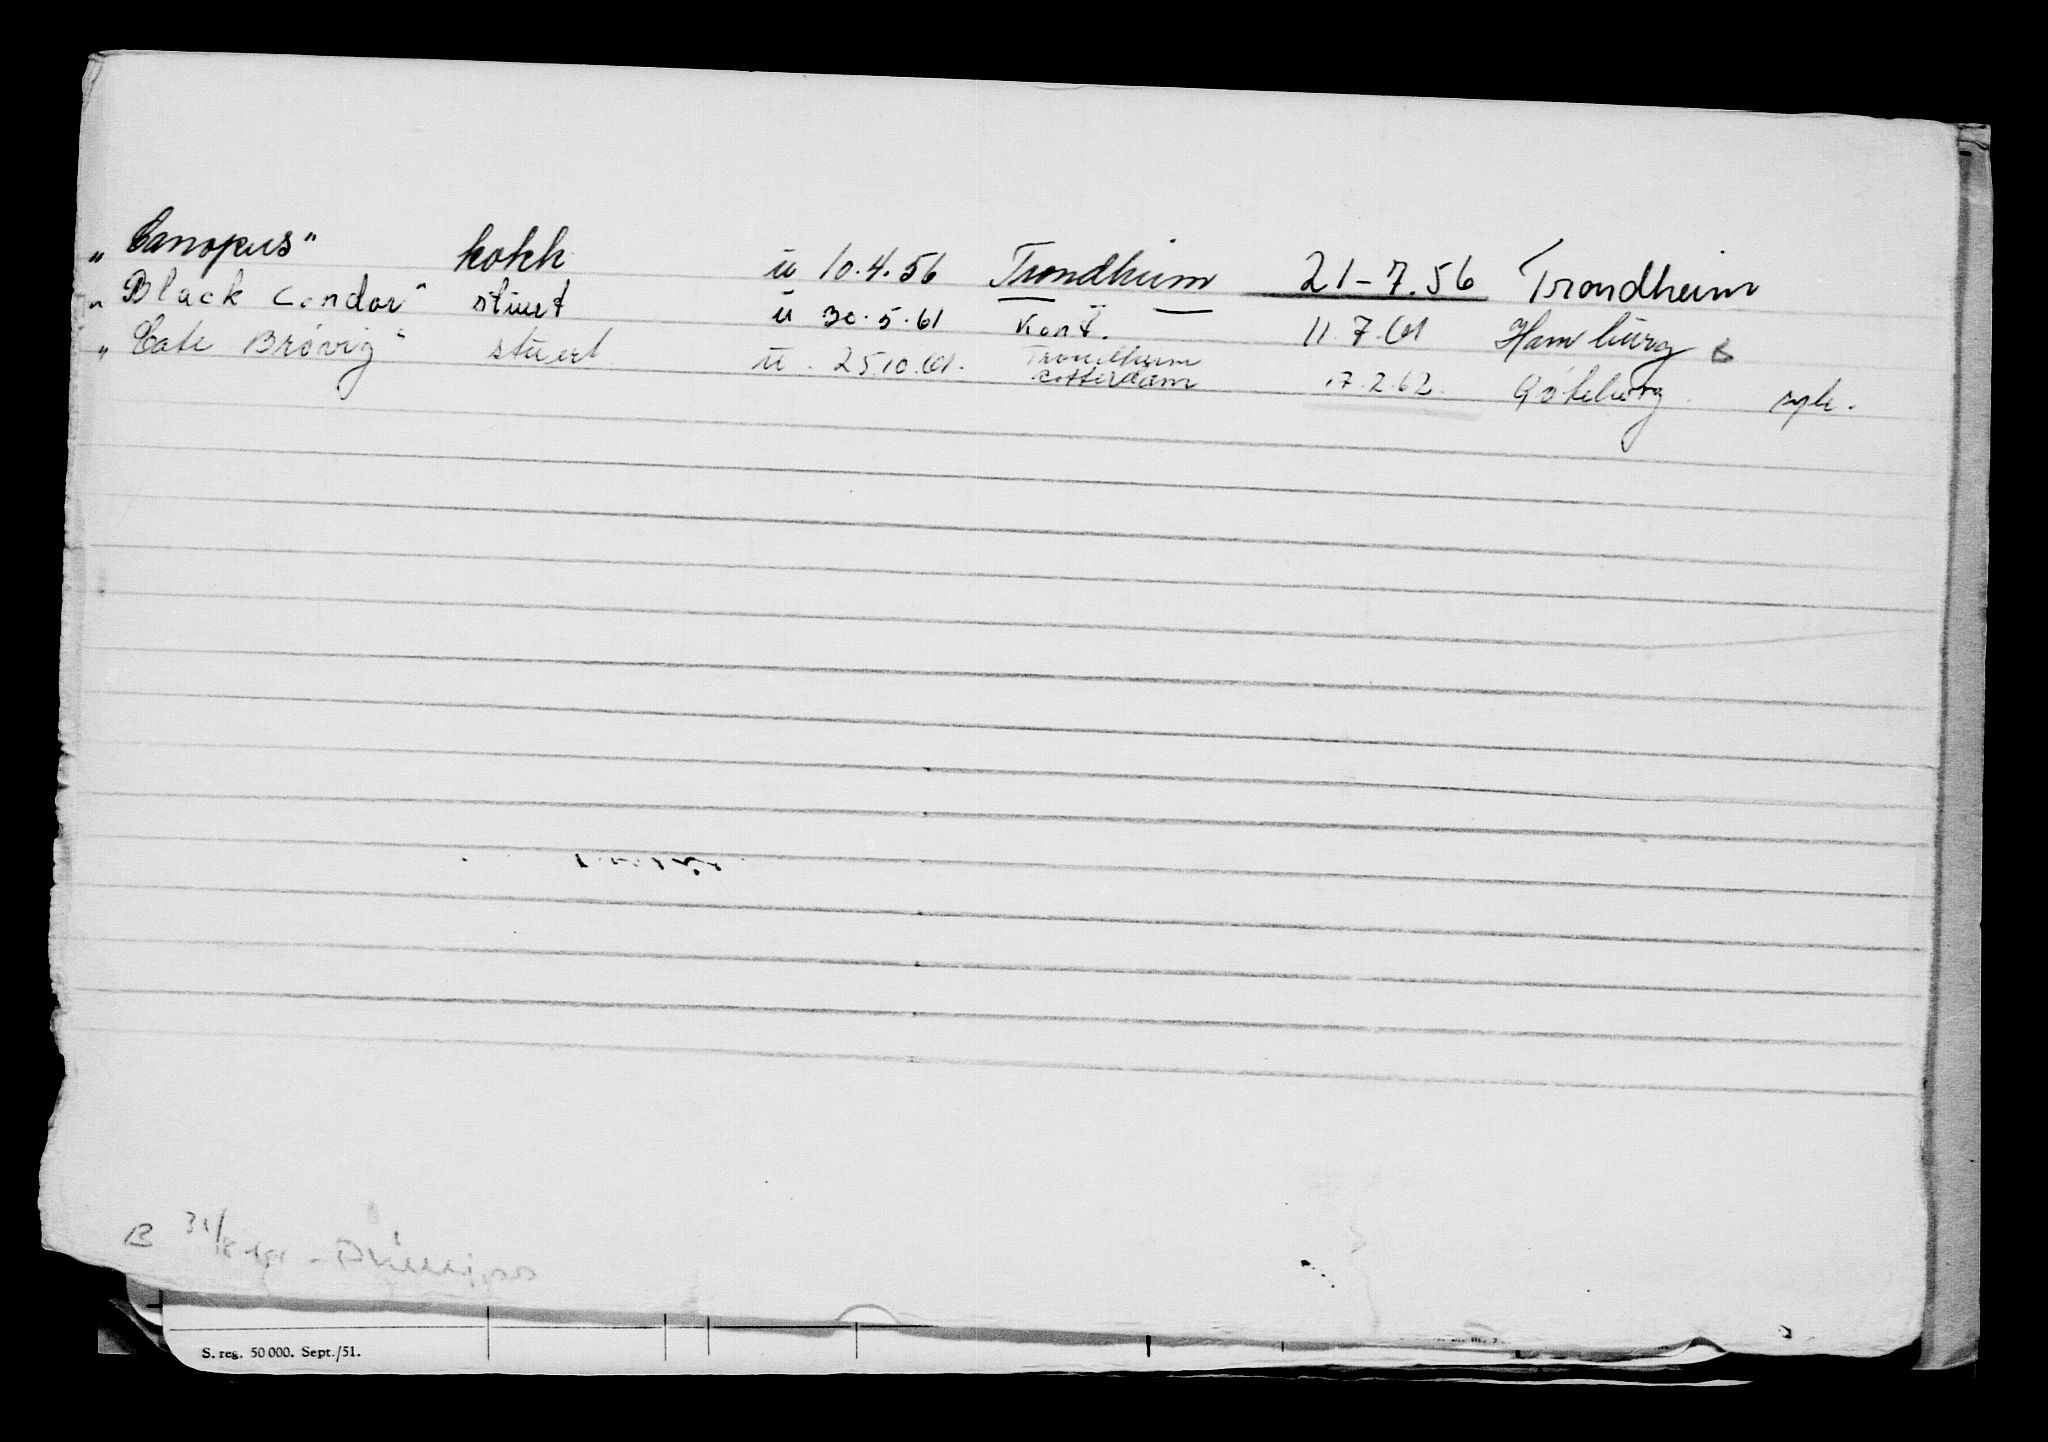 „ Canopus" kokk ü 10.4.56 Trondheim 21-7.56 Trondheim
„ Black Condor" stuert ü 30.5.61 Kont. 11.7.61 Hamburg B
„ Cate Brøvig" stuert ü. 25.10.61. Trondheim Rotterdam 17.2.62. Göteborg syk.
B 31/8
S. reg. 50 000. Sept./51.